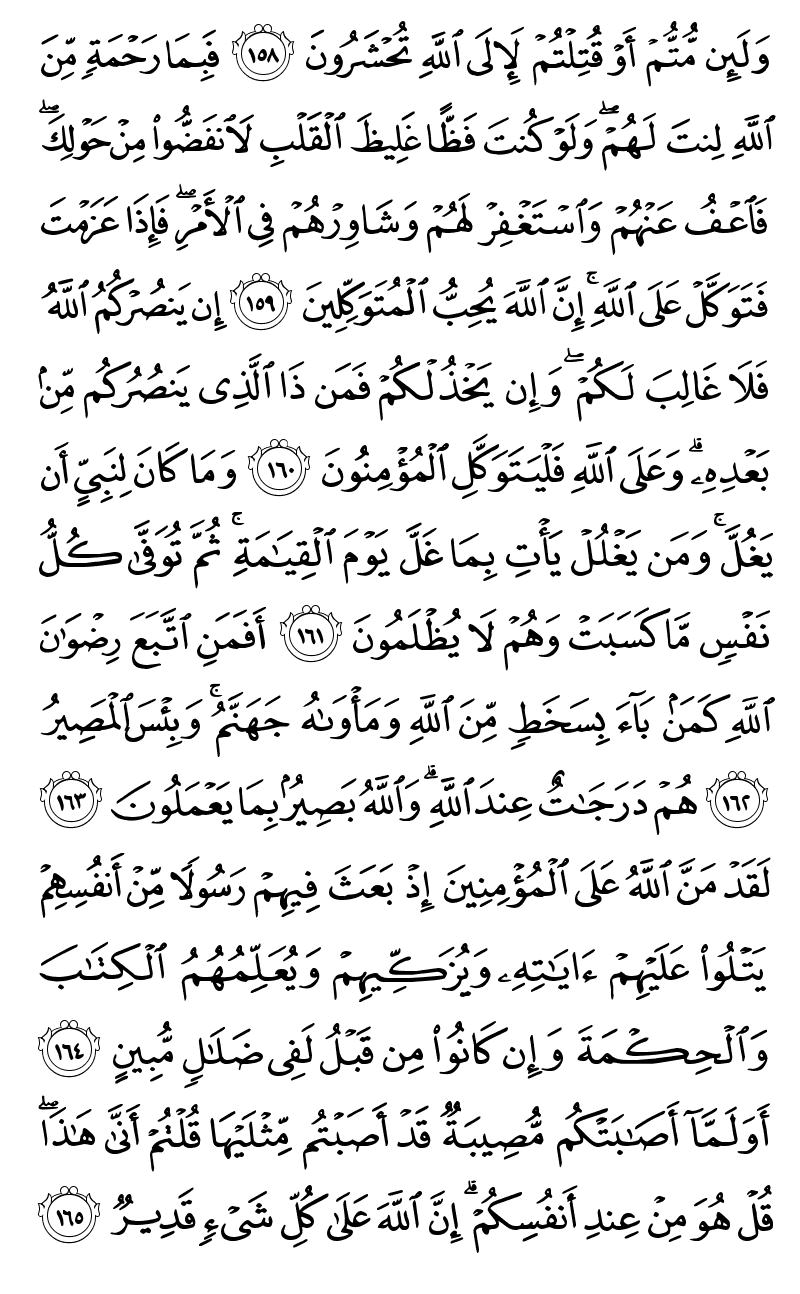 وَلَئِن مُّتُّمۡ أَوۡ قُتِلۡتُمۡ لَإِلَى ٱللَّهِ تُحۡشَرُونَ ١٥٨ فَبِمَا رَحۡمَةٖ مِّنَ
ٱللَّهِ لِنتَ لَهُمۡۖ وَلَوۡ كُنتَ فَظًّا غَلِيظَ ٱلۡقَلۡبِ لَٱنفَضُّواْ مِنۡ حَوۡلِكَۖ
فَٱعۡفُ عَنۡهُمۡ وَٱسۡتَغۡفِرۡ لَهُمۡ وَشَاوِرۡهُمۡ فِي ٱلۡأَمۡرِۖ فَإِذَا عَزَمۡتَ
فَتَوَكَّلۡ عَلَى ٱللَّهِۚ إِنَّ ٱللَّهَ يُحِبُّ ٱلۡمُتَوَكِّلِينَ ١٥٩ إِن يَنصُرۡكُمُ ٱللَّهُ
فَلَا غَالِبَ لَكُمۡۖ وَإِن يَخۡذُلۡكُمۡ فَمَن ذَا ٱلَّذِي يَنصُرُكُم مِّنۢ
بَعۡدِهِۦۗ وَعَلَى ٱللَّهِ فَلۡيَتَوَكَّلِ ٱلۡمُؤۡمِنُونَ ١٦٠ وَمَا كَانَ لِنَبِيٍّ أَن
يَغُلَّۚ وَمَن يَغۡلُلۡ يَأۡتِ بِمَا غَلَّ يَوۡمَ ٱلۡقِيَٰمَةِۚ ثُمَّ تُوَفَّىٰ كُلُّ
نَفۡسٖ مَّا كَسَبَتۡ وَهُمۡ لَا يُظۡلَمُونَ ١٦١ أَفَمَنِ ٱتَّبَعَ رِضۡوَٰنَ
ٱللَّهِ كَمَنۢ بَآءَ بِسَخَطٖ مِّنَ ٱللَّهِ وَمَأۡوَىٰهُ جَهَنَّمُۚ وَبِئۡسَ ٱلۡمَصِيرُ
١٦٢ هُمۡ دَرَجَٰتٌ عِندَ ٱللَّهِۗ وَٱللَّهُ بَصِيرُۢ بِمَا يَعۡمَلُونَ ١٦٣
لَقَدۡ مَنَّ ٱللَّهُ عَلَى ٱلۡمُؤۡمِنِينَ إِذۡ بَعَثَ فِيهِمۡ رَسُولٗا مِّنۡ أَنفُسِهِمۡ
يَتۡلُواْ عَلَيۡهِمۡ ءَايَٰتِهِۦ وَيُزَكِّيهِمۡ وَيُعَلِّمُهُمُ ٱلۡكِتَٰبَ
وَٱلۡحِكۡمَةَ وَإِن كَانُواْ مِن قَبۡلُ لَفِي ضَلَٰلٖ مُّبِينٍ ١٦٤
أَوَلَمَّآ أَصَٰبَتۡكُم مُّصِيبَةٞ قَدۡ أَصَبۡتُم مِّثۡلَيۡهَا قُلۡتُمۡ أَنَّىٰ هَٰذَاۖ
قُلۡ هُوَ مِنۡ عِندِ أَنفُسِكُمۡۗ إِنَّ ٱللَّهَ عَلَىٰ كُلِّ شَيۡءٖ قَدِيرٞ ١٦٥